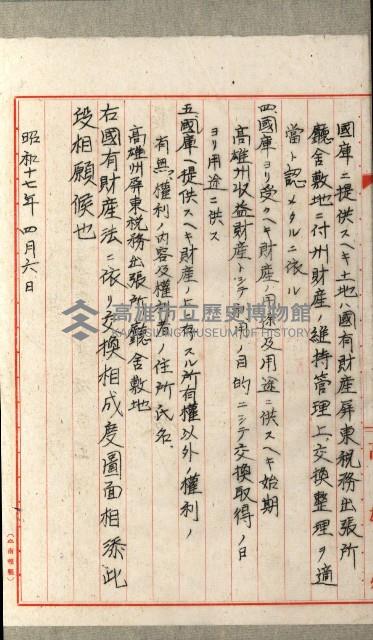 國庫ニ提供スヘキ土地ハ國有財産屏東税務出張所
廳舍敷地ニ付州財産ノ維持管理上、交換整理ヲ適
當ト認メタルニ依ル
四、國庫ヨリ受クヘキ財産ノ用途及用途ニ供スヘキ始期
高雄州收益財産トシテ利用ノ目的ニシテ交換取得ノ日
ヨリ用途ニ供ス
五、國庫ヘ提供スヘキ財産ノ上ニ存スル所有權以外ノ權利ノ
有無、權利ノ内容及權利者ノ住所氏名
高雄州屏東税務出張所廳舍敷地
右國有財産法ニ依リ交換相成度圖面相添此
段相願候也
昭和十七年四月六日
高雄市立歷史博物館
KAOHSIUNG MUSEUM OF HISTORY